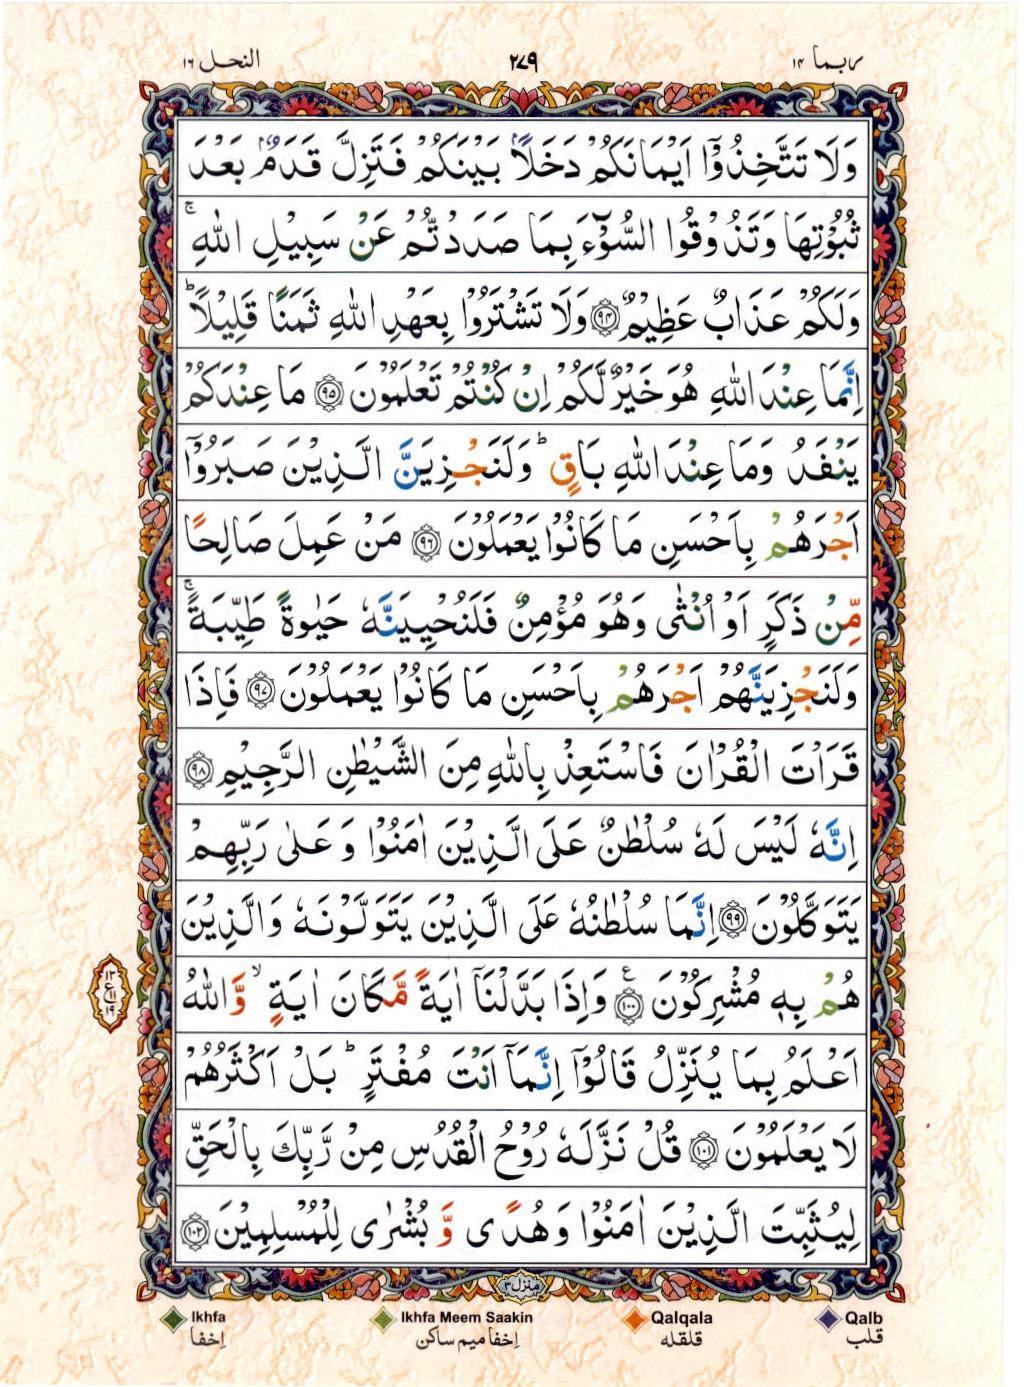 ربما ۱۴
۲۷۹
النحل ۱۶
وَلَا تَتَّخِذُوْۤا اَيْمَانَكُمْ دَخَلًاۢ بَيْنَكُمْ فَتَزِلَّ قَدَمٌۢ بَعْدَ
ثُبُوْتِهَا وَتَذُوْقُوا السُّوْٓءَ بِمَا صَدَدْتُّمْ عَنْ سَبِيْلِ اللّٰهِ ۚ
وَلَكُمْ عَذَابٌ عَظِيْمٌ ﴿۹۴﴾ وَلَا تَشْتَرُوْا بِعَهْدِ اللّٰهِ ثَمَنًا قَلِيْلًا ؕ
اِنَّمَا عِنْدَ اللّٰهِ هُوَ خَيْرٌ لَّكُمْ اِنْ كُنْتُمْ تَعْلَمُوْنَ ﴿۹۵﴾ مَا عِنْدَكُمْ
يَنْفَدُ وَمَا عِنْدَ اللّٰهِ بَاقٍ ؕ وَلَنَجْزِيَنَّ الَّذِيْنَ صَبَرُوْۤا
اَجْرَهُمْ بِاَحْسَنِ مَا كَانُوْا يَعْمَلُوْنَ ﴿۹۶﴾ مَنْ عَمِلَ صَالِحًا
مِّنْ ذَكَرٍ اَوْ اُنْثٰى وَهُوَ مُؤْمِنٌ فَلَنُحْيِيَنَّهٗ حَيٰوةً طَيِّبَةً ۚ
وَلَنَجْزِيَنَّهُمْ اَجْرَهُمْ بِاَحْسَنِ مَا كَانُوْا يَعْمَلُوْنَ ﴿۹۷﴾ فَاِذَا
قَرَاْتَ الْقُرْاٰنَ فَاسْتَعِذْ بِاللّٰهِ مِنَ الشَّيْطٰنِ الرَّجِيْمِ ﴿۹۸﴾
اِنَّهٗ لَيْسَ لَهٗ سُلْطٰنٌ عَلَى الَّذِيْنَ اٰمَنُوْا وَعَلٰى رَبِّهِمْ
يَتَوَكَّلُوْنَ ﴿۹۹﴾ اِنَّمَا سُلْطٰنُهٗ عَلَى الَّذِيْنَ يَتَوَلَّوْنَهٗ وَالَّذِيْنَ
هُمْ بِهٖ مُشْرِكُوْنَ ﴿۱۰۰﴾ ع وَاِذَا بَدَّلْنَاۤ اٰيَةً مَّكَانَ اٰيَةٍ ۙ وَّاللّٰهُ
اَعْلَمُ بِمَا يُنَزِّلُ قَالُوْۤا اِنَّمَاۤ اَنْتَ مُفْتَرٍ ؕ بَلْ اَكْثَرُهُمْ
لَا يَعْلَمُوْنَ ﴿۱۰۱﴾ قُلْ نَزَّلَهٗ رُوْحُ الْقُدُسِ مِنْ رَّبِّكَ بِالْحَقِّ
لِيُثَبِّتَ الَّذِيْنَ اٰمَنُوْا وَهُدًى وَّ بُشْرٰى لِلْمُسْلِمِيْنَ ﴿۱۰۲﴾
منزل ۳
Ikhfa
اِخفا
Ikhfa Meem Saakin
اِخفا میم ساکن
Qalqala
قلقله
Qalb
قلب